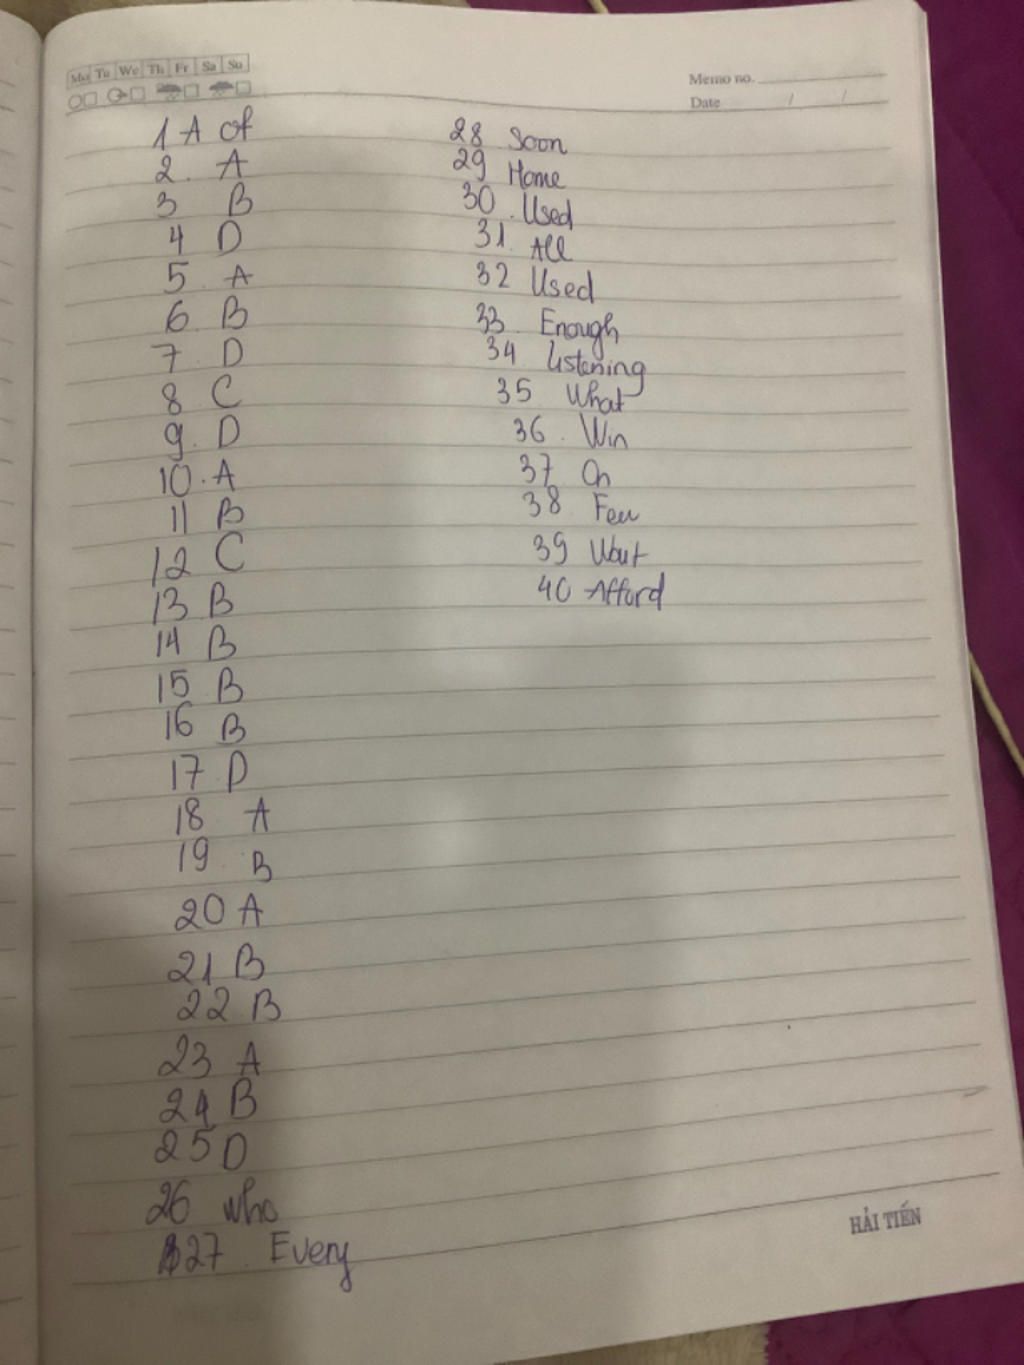 Mo Tu We Th Fr Sa Su
Memo no.
Date / /
1 A of
2. A
3 B
4 D
5 A
6. B
7. D
8 C
9. D
10. A
11 B
12 C
13 B
14 B
15 B
16 B
17 D
18 A
19 B
20 A
21 B
22 B
23 A
24 B
25 D
26 who
27. Every
28 Soon
29 Home
30. Used
31. All
32 Used
33. Enough
34 listening
35 What
36. Win
37 On
38 Few
39 Wait
40 Afford
HẢI TIẾN